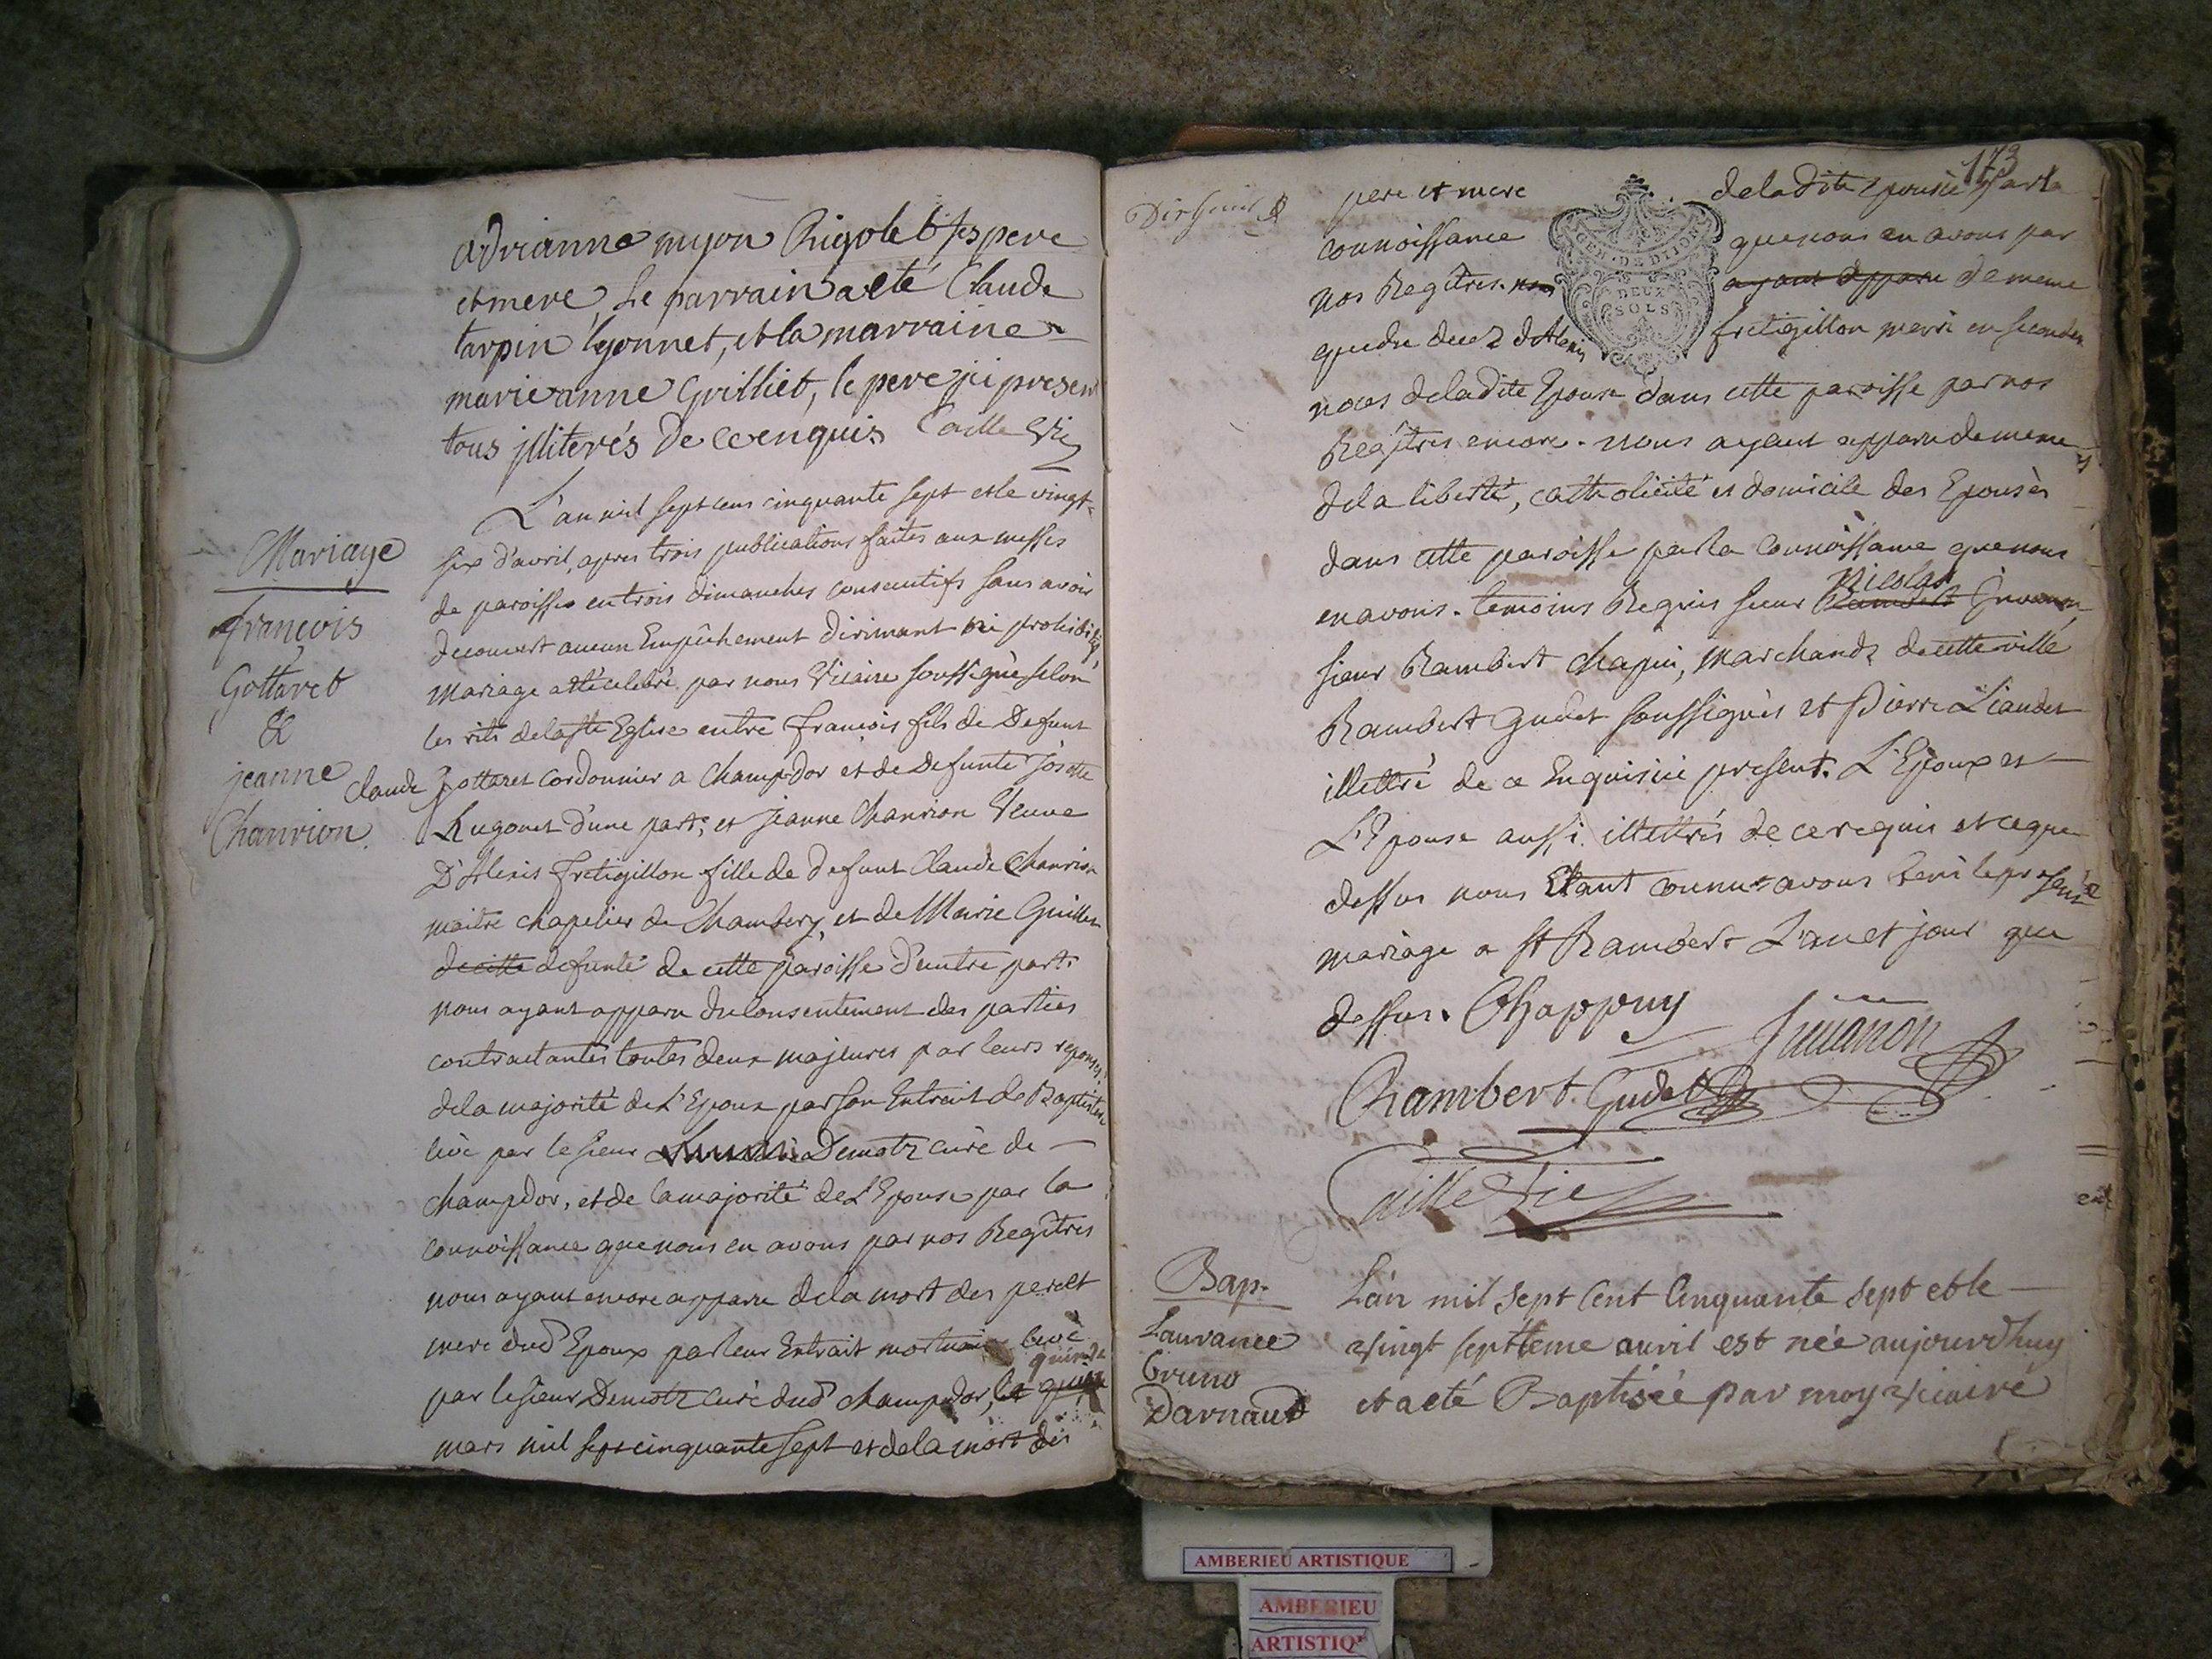 adrianne myon Rigolet ses pere
et mere, Le parrain a eté Claude
tarpin lyonnet, et la marraine
marieanne Grilliet, le pere ici present
tous illiterés de ce enquis Caille Vic
Mariage
françois
Gottaret
&
jeanne
Chanrion.
L'an mil sept cens cinquante sept et le vingt-
six d'avril, apres trois publications faites aux messes
de paroisse en trois dimanches consecutifs sans avoir
decouvert aucun Empêchement dirimant ni prohibitif,
mariage a été celebré par nous Vicaire soussigné selon
les rits de la ste Eglise entre francois fils de Defunt
claude Gottaret cordonnier a Champdor et de Defunte Josette
Hugonet d'une part; et jeanne Chanrion Veuve
D'Alexis fretigillon fille de defunt Claude Chanrion
maitre chapelier de Chambery, et de Marie Guillet
de cette defunte de cette paroisse d'autre part.
nous ayant apparu du Consentement des parties
contractantes toutes deux majeures par leurs reponses,
de la majorité de L'Epoux par son Extrait de Baptistere
livé par le sieur Demotz curé de
champdor, et de la majorité de L'Epouse par la
connoissance que nous en avons par nos Regîtres
nous ayant encore apparu de la mort des pere et
mere dud Epoux par leur Extrait mortuaire levé
par le sieur Demotz curé dud champdor, le
mars mil sept cinquante sept et de la mort des
173
pere et mere de la dite epouse par la
connoissance que nous en avons par
nos Regîtres. nous ayant apparu de meme
que du decez d'Alexis fretigillon marri en secondes
noces de la dite Epouse dans cette paroisse par nos
Regîtres encore. nous ayant apparu de meme
de la liberté, catholicité et domicile des Epousès
dans cette paroisse par la Connoissance que nous
en avons. temoins Requis sieur Rambert Nicolas Juvanon,
sieur Rambert chapui, marchands de cette ville
Rambert Gudet soussignès et Pierre Liaudet
illettré de ce Enquis ici present. L'Epoux et
L'Epouse aussi illettrés de ce requis et ce que
dessus nous Etant connu avons beni le present
mariage a st Rambert L'an et jour que
dessus. Chappuy Juuanon
Rambert Gudet
Caille Vic
Bap.
Laurance
bruno
Darnaud
L'an mil sept Cent Cinquante sept et le
vingt septieme avril est née aujourdhuy
et a eté Baptisée par moy vicaire
GEN. DE DIJON
DEUX
SOLS
AMBERIEU ARTISTIQUE
AMBERIEU
ARTISTIQ